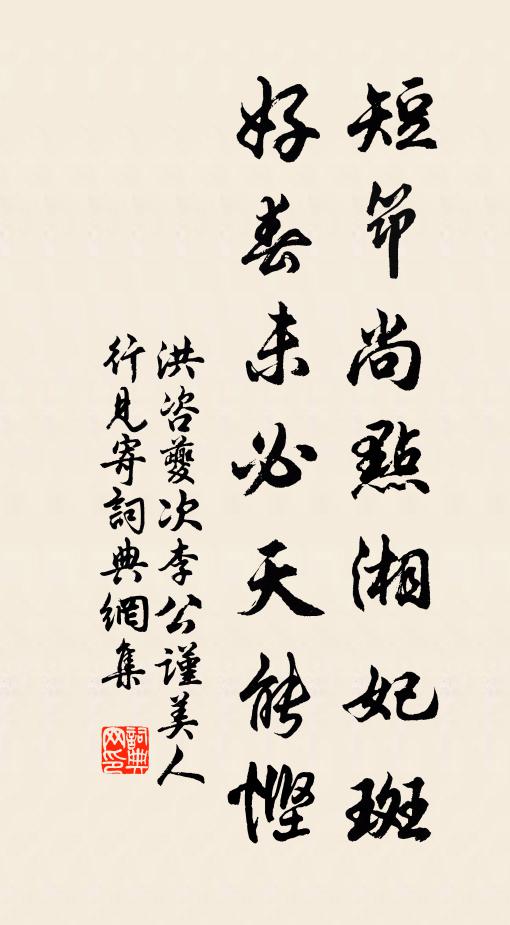 短筇尚點湘妃斑
好春未必天能慳
洪咨夔次李公謹美人
行見寄詞典網集
詞典
网印